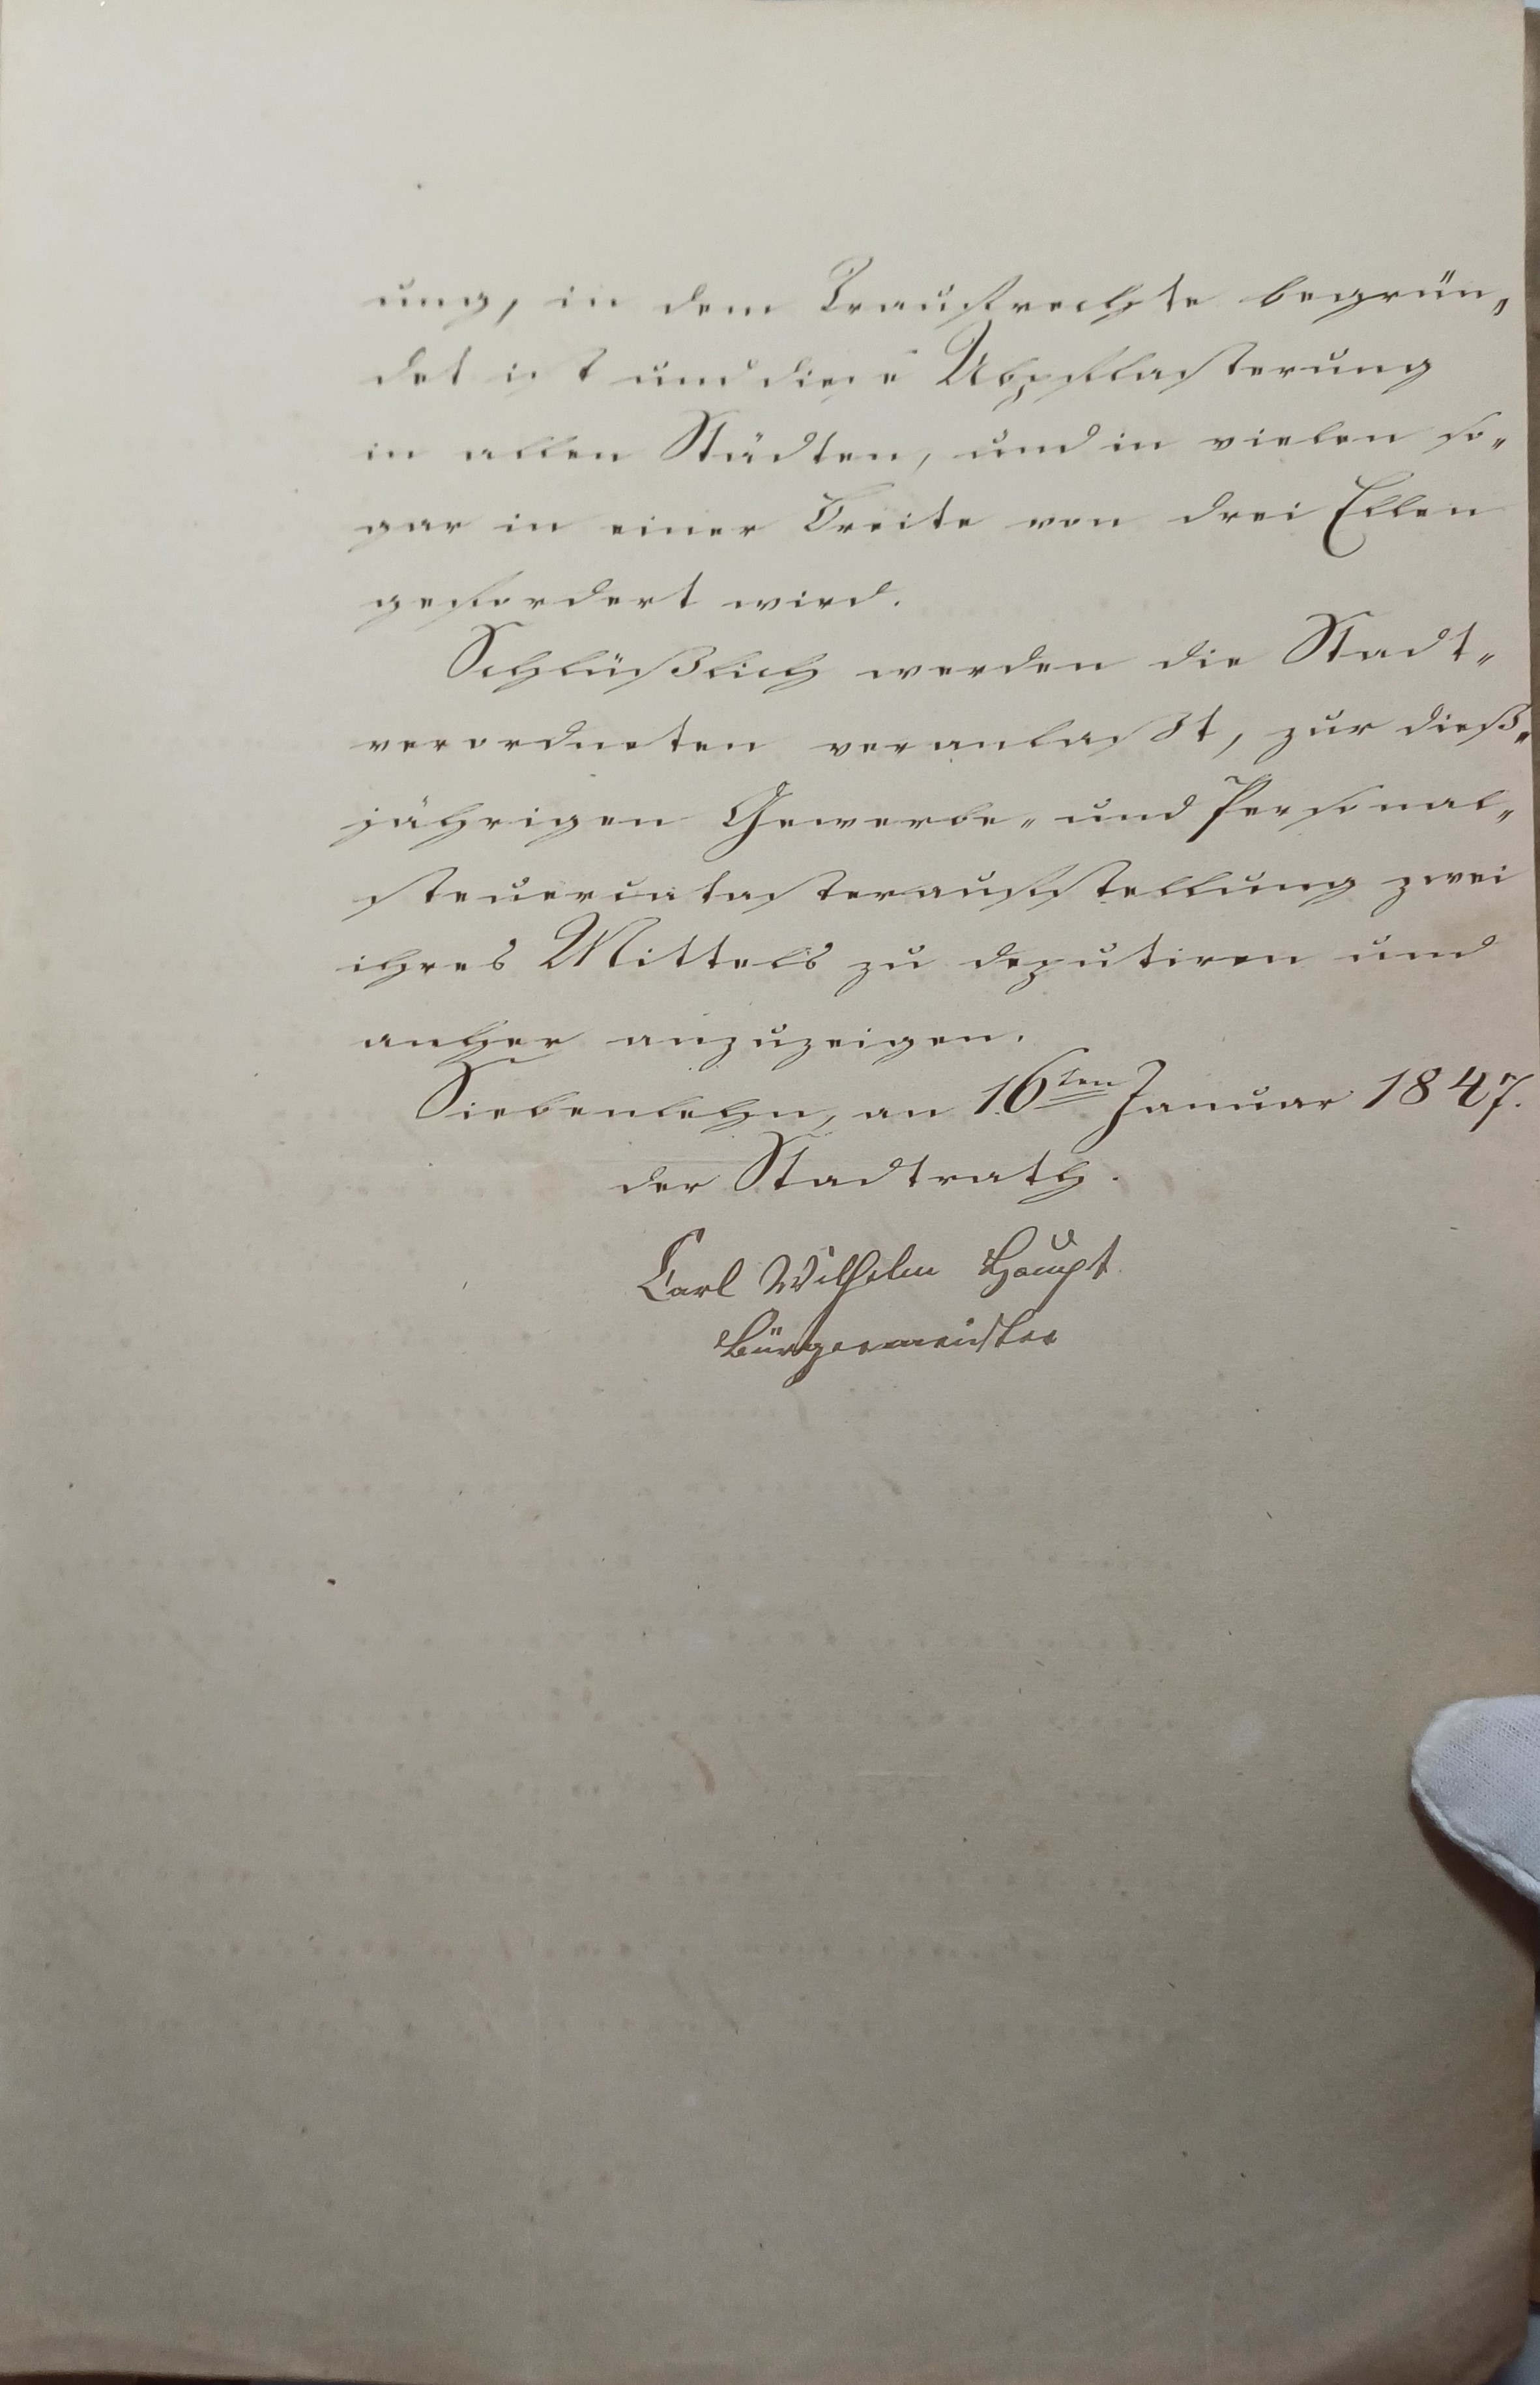 ung, in dem Traufrechte begrün„
det ist und diese Abpflasterung
in allen Städten, und in vielen so„
gar in einer Breite von drei Ellen
gefordert wird.
Schlüßlich werden die Stadt„
verordneten veranlaßt, zur dieß„
jährigen Gewerbe„ und Personal„
steuercatasteraufstellung zwei
ihres Mittels zu deputiren und
anher anzuzeigen.
Siebenlehn, an 16ten Januar 1847.
der Stadtrath.
Carl Wilhelm Haupt
Bürgermeister